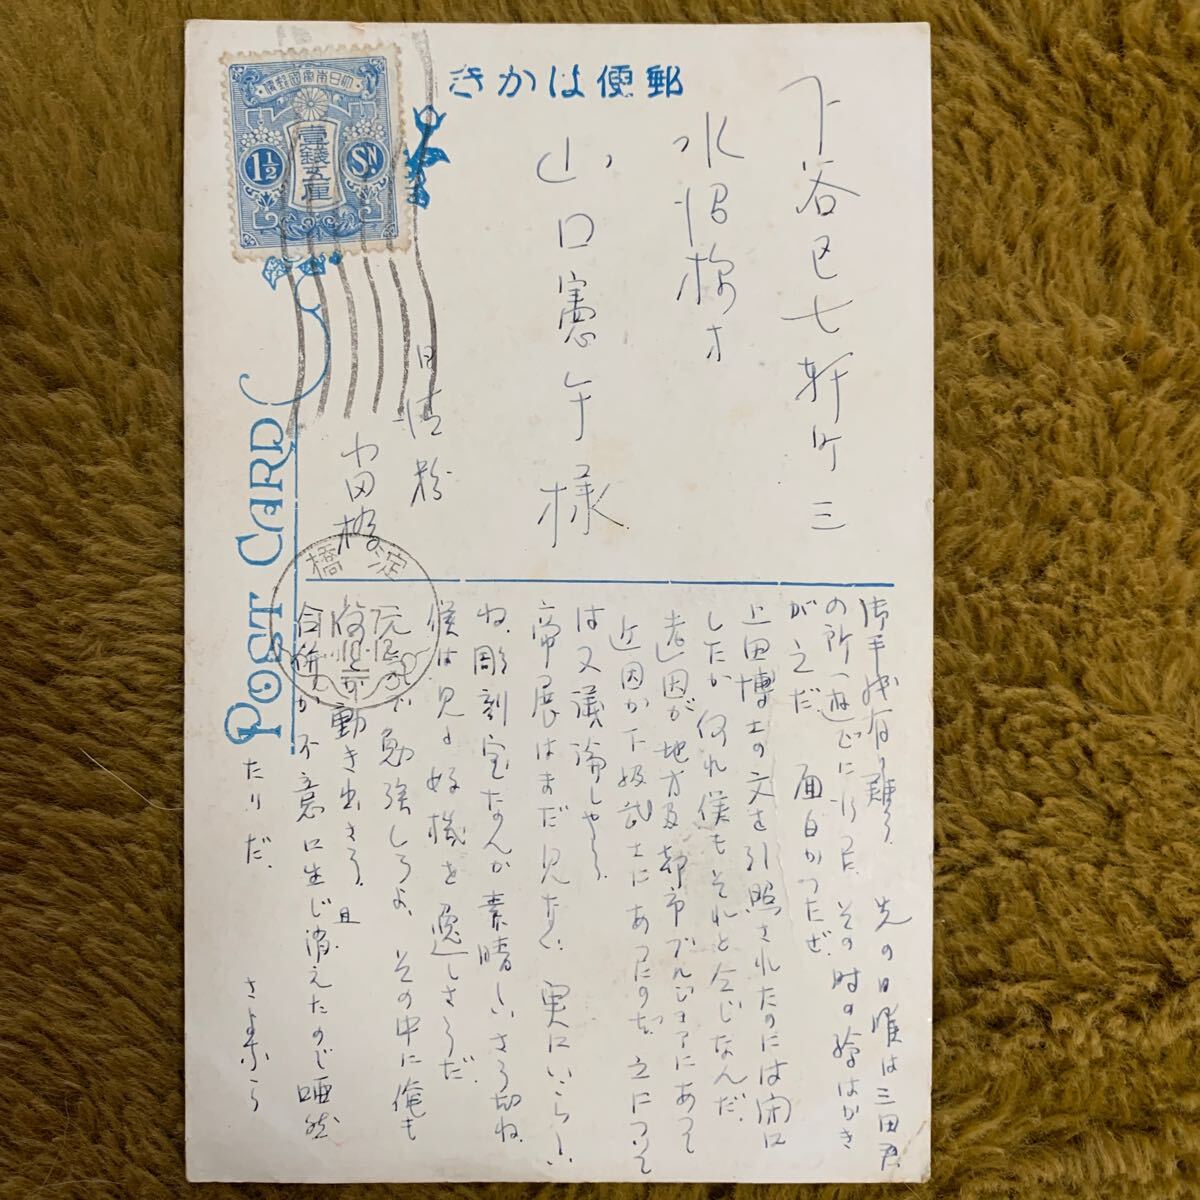 郵便はかき
大日本帝國郵便
壹錢五厘
1½ SN
1½
POST CARD
下谷区七軒町三
水沼様方
山口憲午様
淀橋
御手紙有難う 先の日曜は三田君
の所へ遊びに行った その時の絵はがき
がこれだ 面白かったぜ
上田博士の文を引照されたのには閉口
したが 何れ僕もそれと仝じなんだ
遠因が地方及都市ブルジョアにあって
近因が下級武士にあったのだ、之について
は又議論しやう
帝展はまだ見ない 実にいゝらしい
ね、彫刻室なんか素晴しいさうだね
僕は見る好機を逸しさうだ
元気で勉強しろよ、その中に俺も
動き出さう、且
合併が不意に生じ消えたので唖然
たりだ、 さよなら